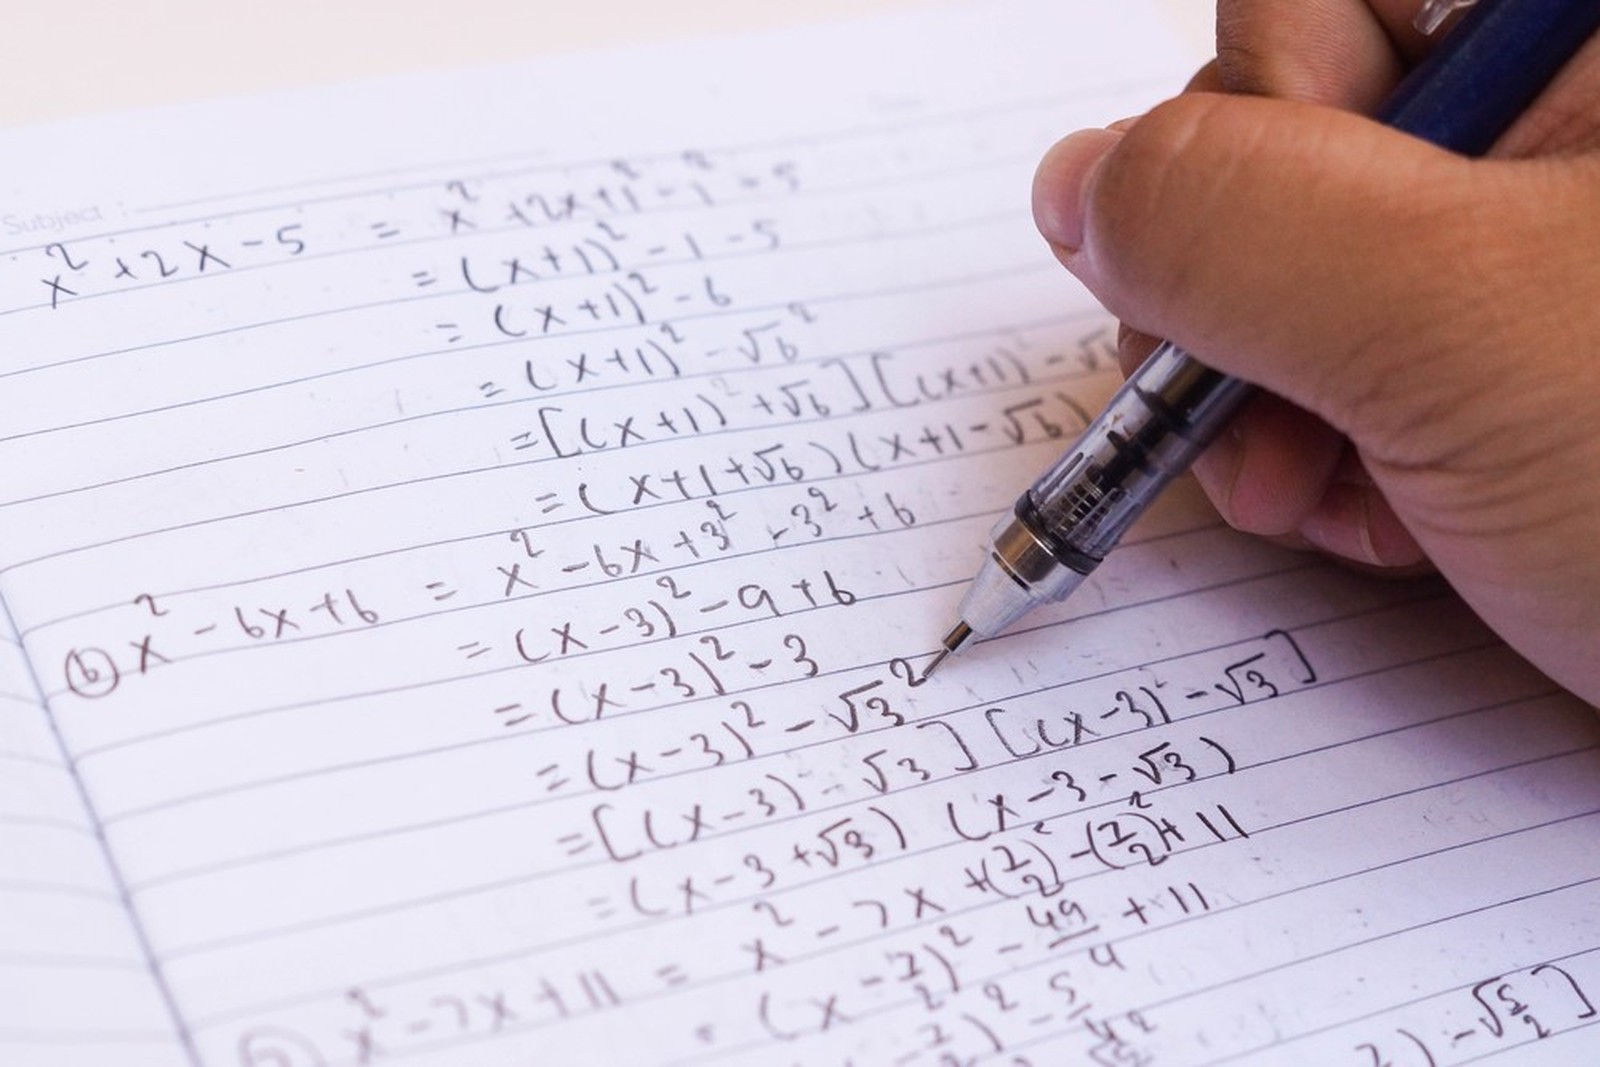 Subject :
x² + 2x - 5 = x² + 2x + 1² - 1² - 5
= (x+1)² - 1 - 5
= (x+1)² - 6
= (x+1)² - √6²
= [(x+1)² + √6] [(x+1)² - √6
= (x+1+√6) (x+1-√6)
(b) x² - 6x + 6 = x² - 6x + 3² - 3² + 6
= (x-3)² - 9 + 6
= (x-3)² - 3
= (x-3)² - √3²
= [(x-3) - √3] [(x-3)² - √3]
= (x-3+√3) (x-3-√3)
x² - 7x + 11 = x² - 7x + (7/2)² - (7/2)² + 11
= (x - 7/2)² - 49/4 + 11
- 7/2)² - 5/4
) - √5/2]